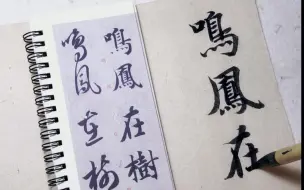 鳴鳳在
鳴鳳在樹
鳴鳳在樹